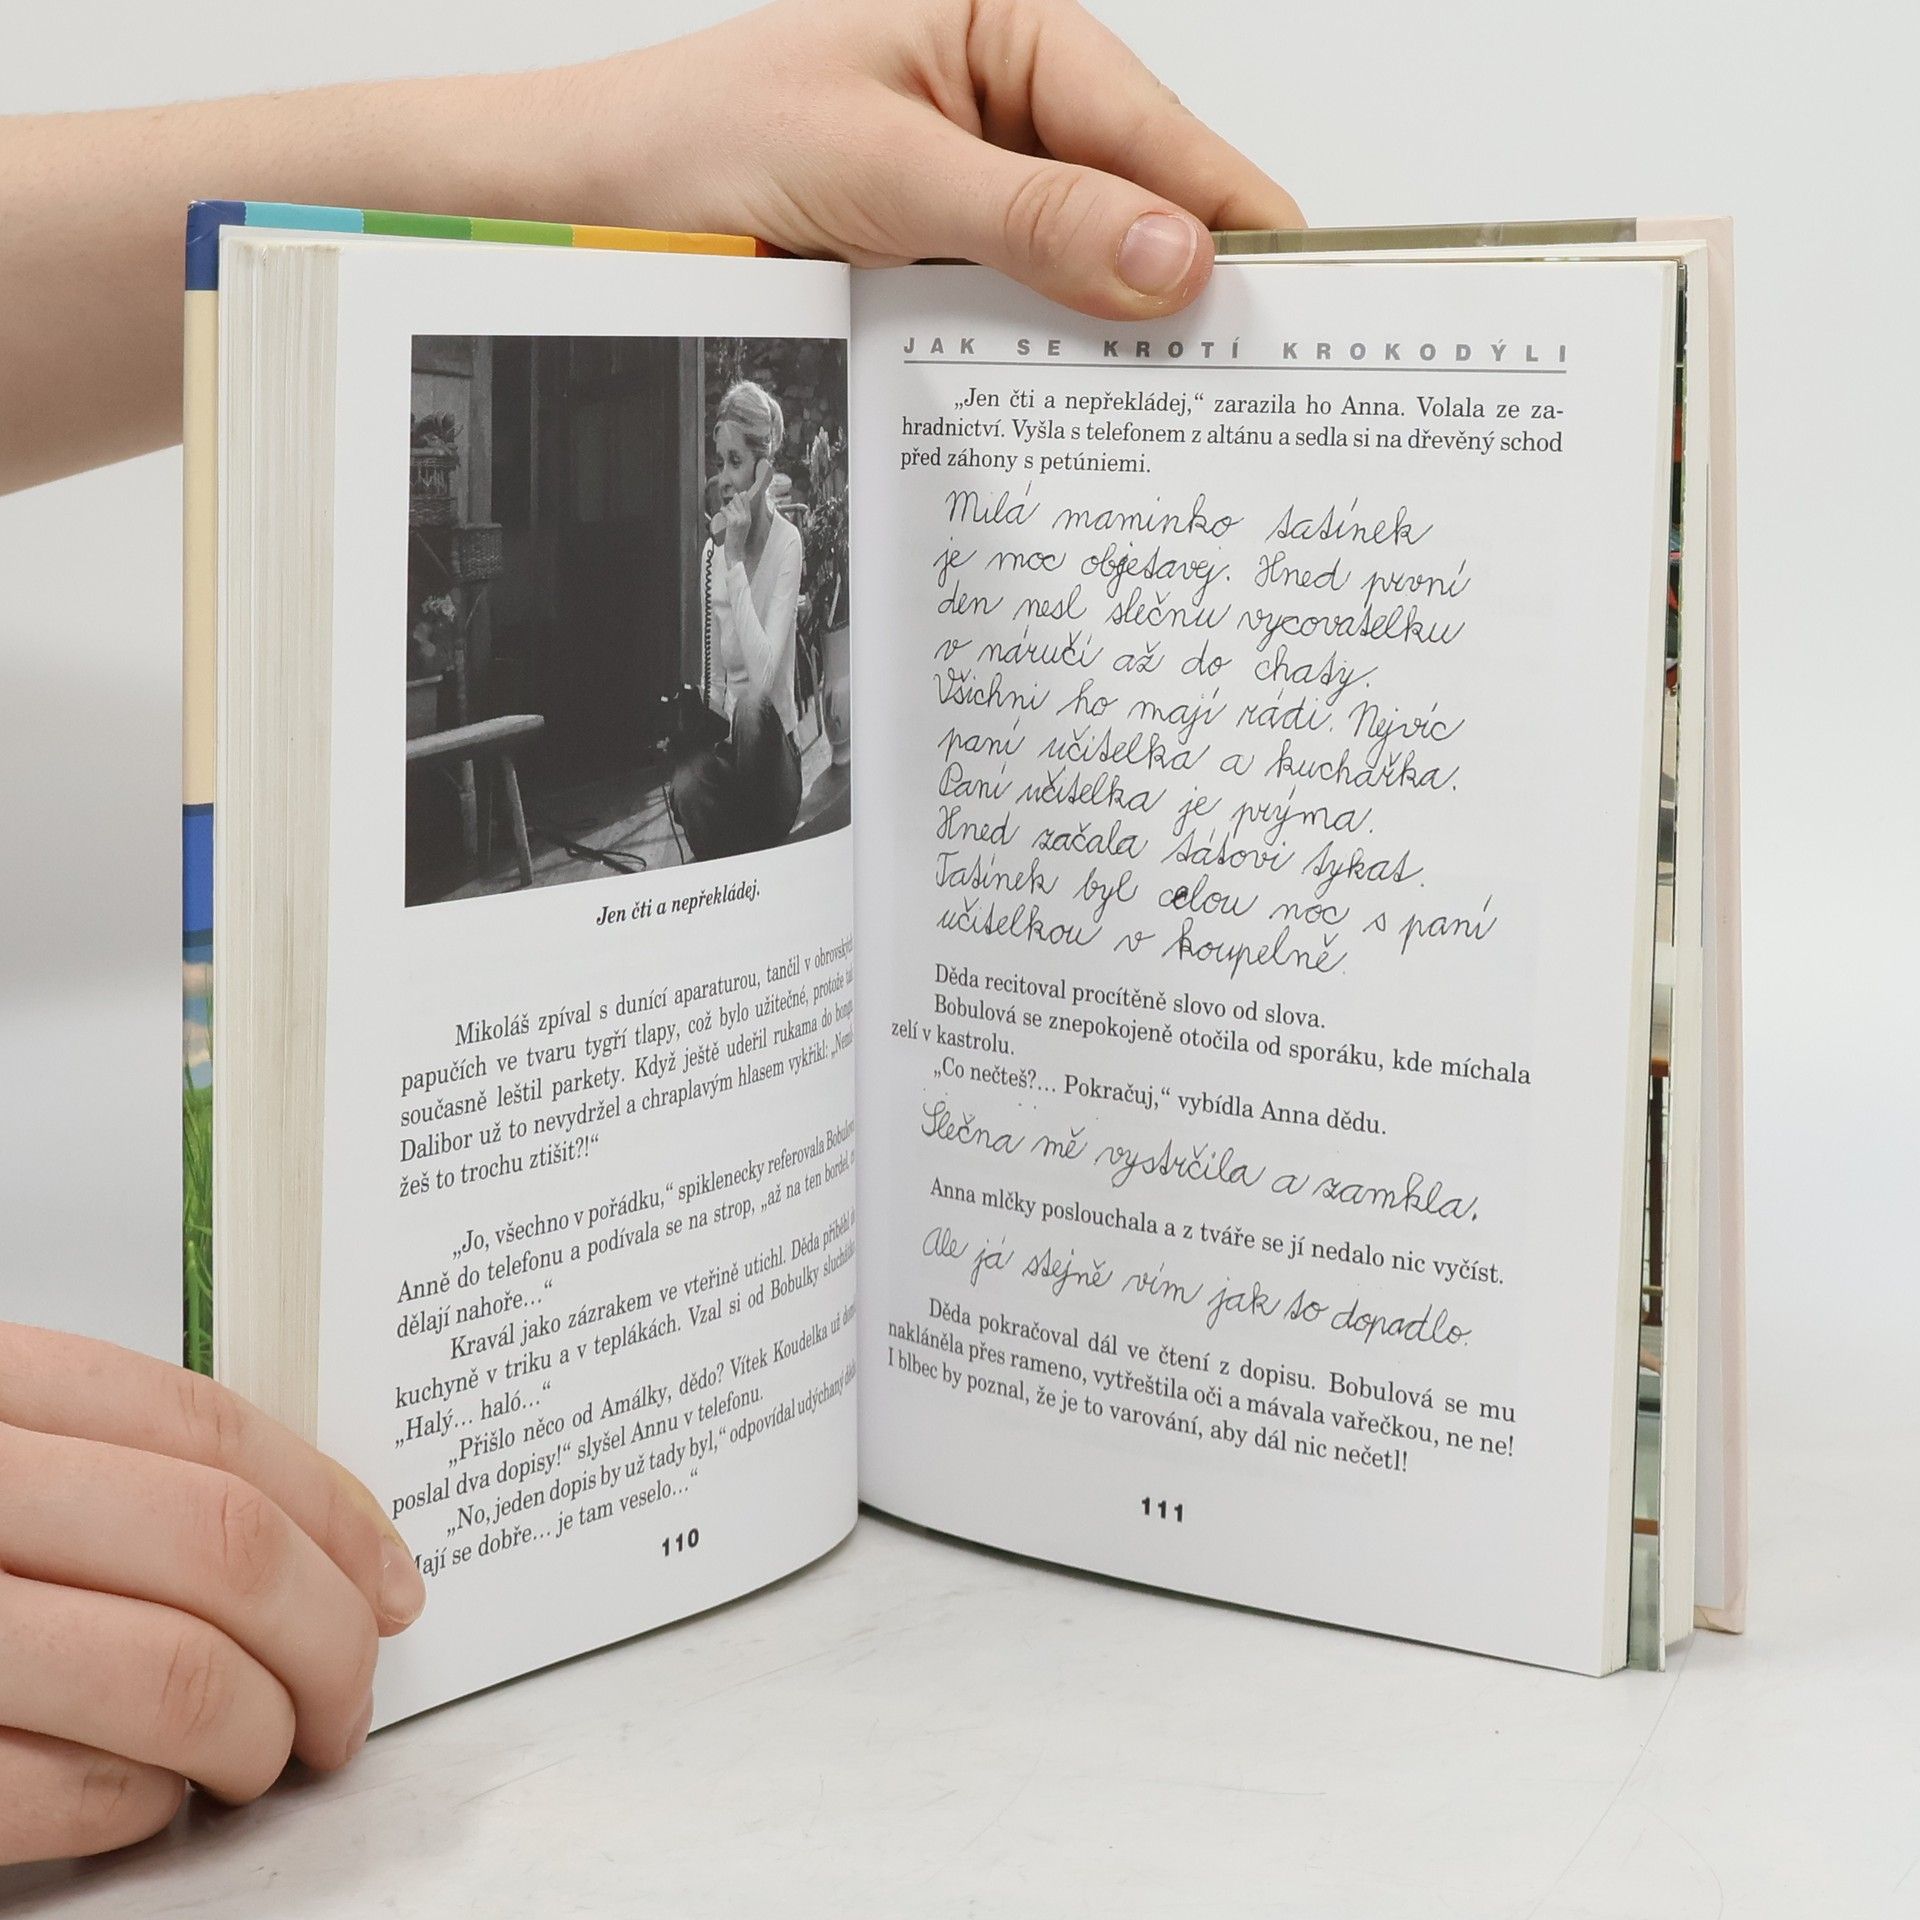 Jen čti a nepřekládej.
Mikoláš zpíval s dunící aparaturou, tančil v obrovských
papučích ve tvaru tygří tlapy, což bylo užitečné, protože tak
současně leštil parkety. Když ještě udeřil rukama do bonga,
Dalibor už to nevydržel a chraplavým hlasem vykřikl: „Nemů-
žeš to trochu ztišit?!“
„Jo, všechno v pořádku,“ spiklenecky referovala Bobulová
Anně do telefonu a podívala se na strop, „až na ten bordel,
dělají nahoře…“
Kravál jako zázrakem ve vteřině utichl. Děda přiběhl do
kuchyně v triku a v teplákách. Vzal si od Bobulky sluchátko.
„Halý… haló…“
„Přišlo něco od Amálky, dědo? Vítek Koudelka už domů
poslal dva dopisy!“ slyšel Annu v telefonu.
„No, jeden dopis by už tady byl,“ odpovídal udýchaný děda.
Mají se dobře… je tam veselo…“
110
JAK SE KROTÍ KROKODÝLI
„Jen čti a nepřekládej,“ zarazila ho Anna. Volala ze za-
hradnictví. Vyšla s telefonem z altánu a sedla si na dřevěný schod
před záhony s petúniemi.
Milá maminko tatínek
je moc objetavej. Hned první
den nesl slečnu vycovatelku
v náručí až do chaty.
Všichni ho mají rádi. Nejvíc
paní učitelka a kuchařka.
Paní učitelka je prýma.
Hned začala tátovi tykat.
Tatínek byl celou noc s paní
učitelkou v koupelně.
Děda recitoval procítěně slovo od slova.
Bobulová se znepokojeně otočila od sporáku, kde míchala
zelí v kastrolu.
„Co nečteš?… Pokračuj,“ vybídla Anna dědu.
Slečna mě vystrčila a zamkla.
Anna mlčky poslouchala a z tváře se jí nedalo nic vyčíst.
Ale já stejně vím jak to dopadlo.
Děda pokračoval dál ve čtení z dopisu. Bobulová se mu
nakláněla přes rameno, vytřeštila oči a mávala vařečkou, ne ne!
I blbec by poznal, že je to varování, aby dál nic nečetl!
111